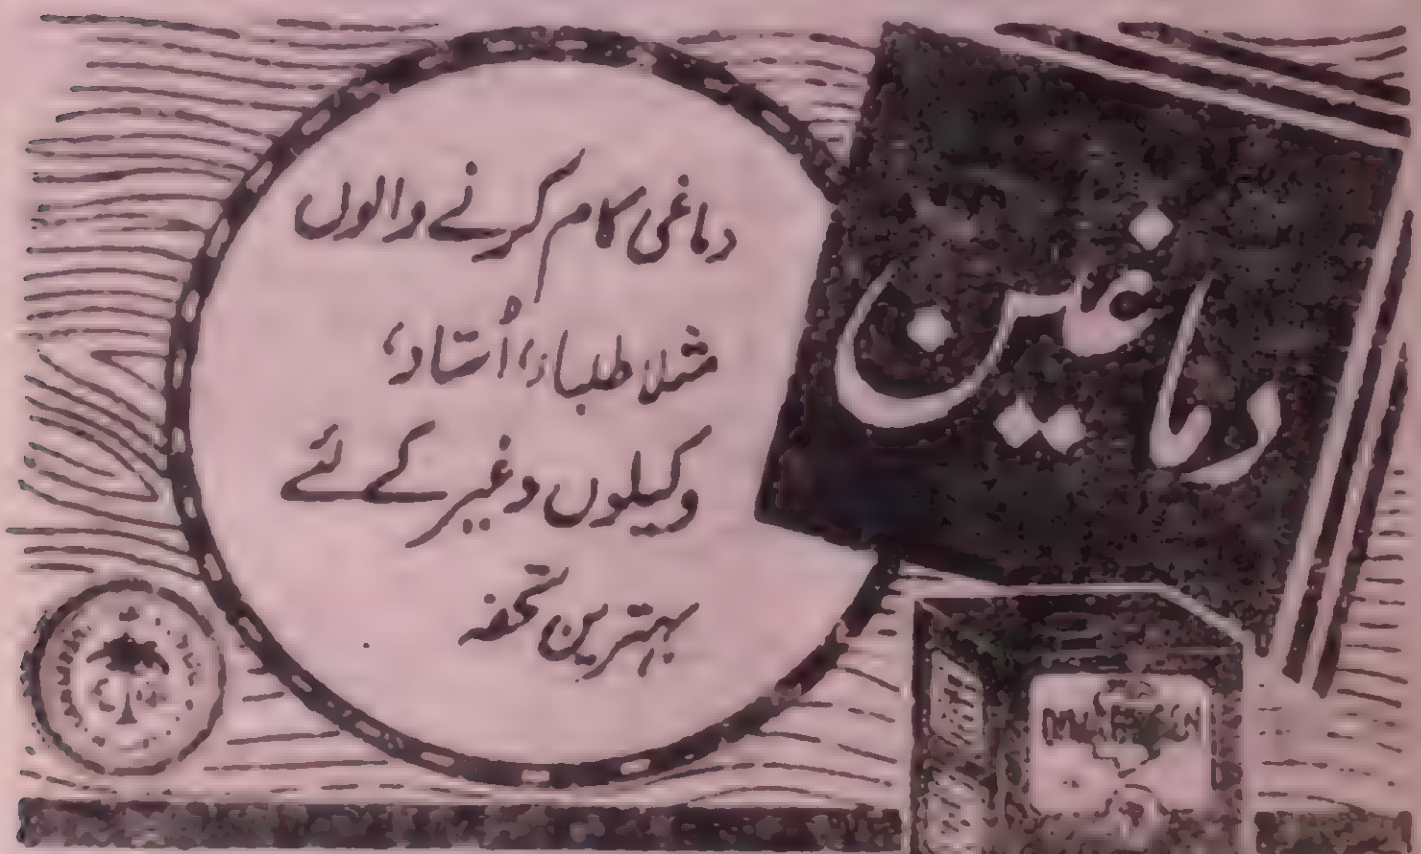 دماغین
دماغی کام کرنے والوں
مثلاً طلباء، اُستاد،
وکیلوں وغیر کے لئے
بہترین تحفہ